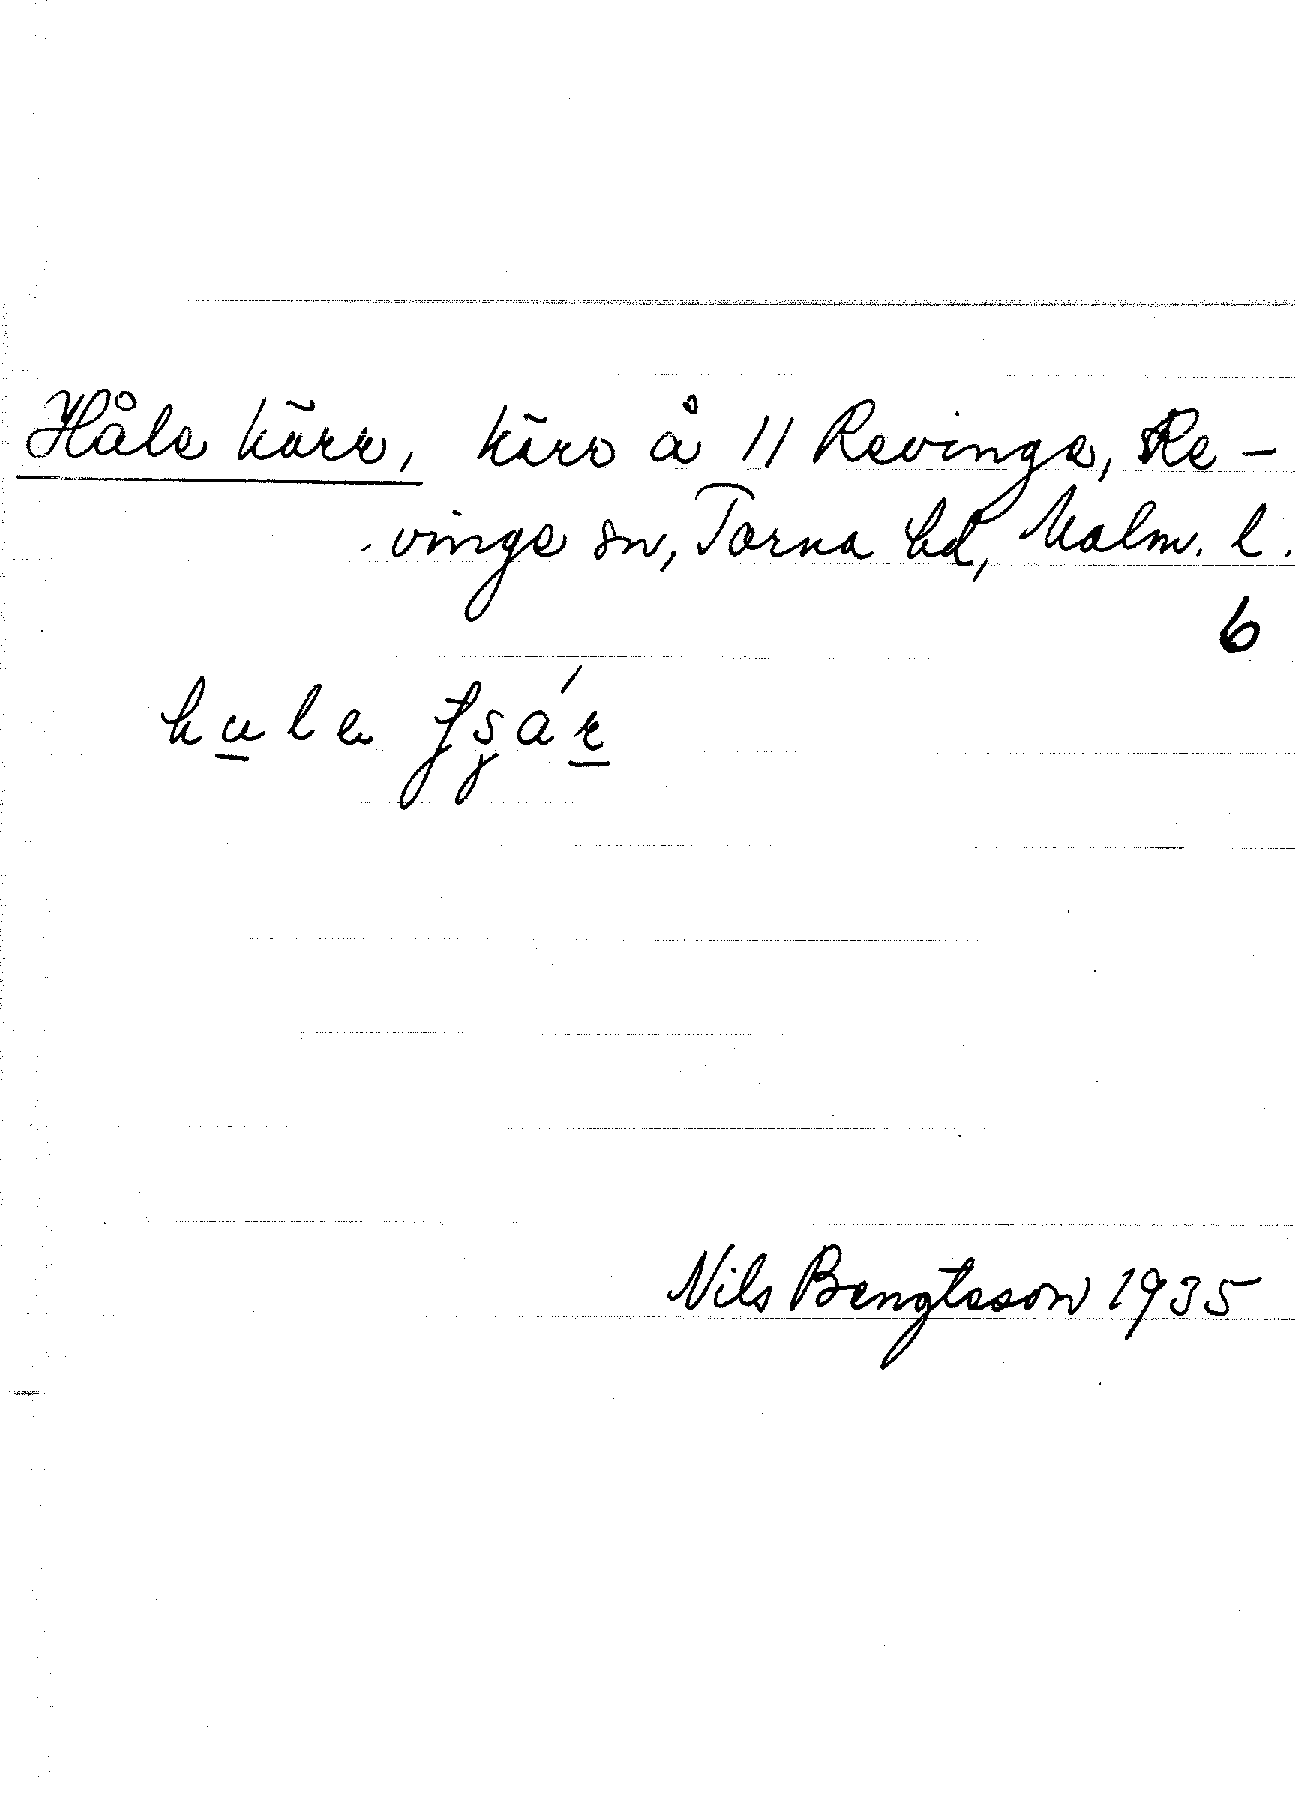 Håle kärr, kärr å 11 Revinge, Re-
vinge sn, Torna hd, Malm. l.
6
Nils Bengtsson 1935